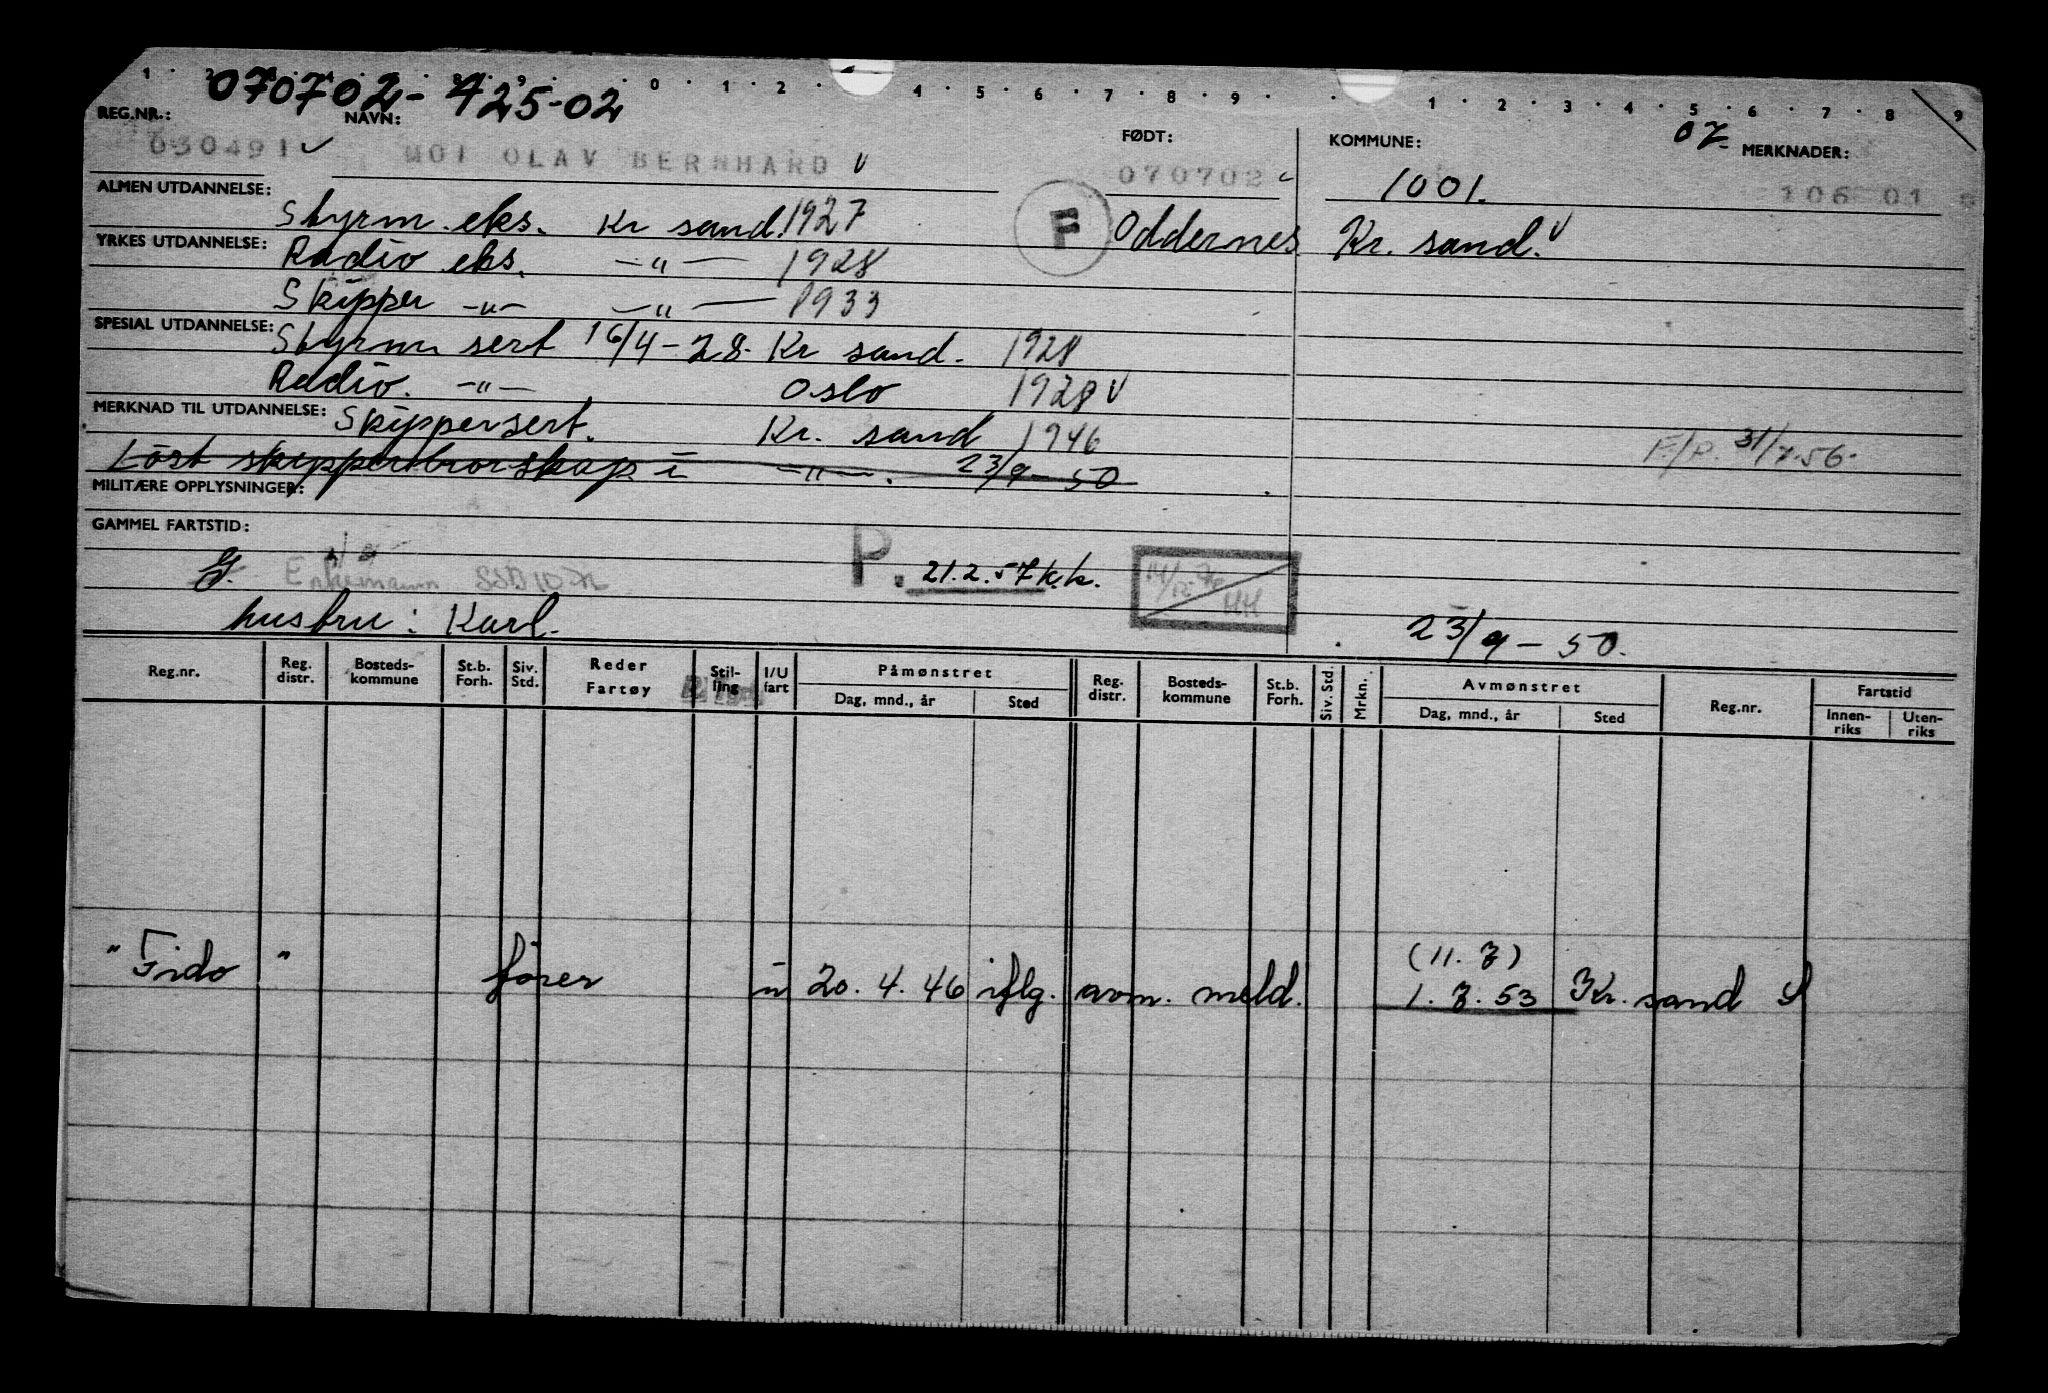 1 2 3 4 5 6 7 8 9 1 2 3 4 5 6 7 8 9
070702-425-02
REG.NR.: NAVN: FØDT: KOMMUNE: 07 MERKNADER:
030491 MOI OLAV BERNHARD 070702 1001. 106 01
ALMEN UTDANNELSE: Styrm. eks. Kr sand. 1927 F Oddernes Kr. sand.
YRKES UTDANNELSE: Radio eks. -"- 1928
Skipper -"- -"- 1933
SPESIAL UTDANNELSE: Styrm sert 16/4-28. Kr sand. 1928
Radio. -"- Oslo 1928
MERKNAD TIL UTDANNELSE: Skippersert. Kr. sand 1946 F/P. 31/7-56-
Löst skipperborskap i -"-. 23/9-50
MILITÆRE OPPLYSNINGER:
GAMMEL FARTSTID:
G. Enkemann P. 21.2.57 k.k. HH
husfru: Karl. 23/9-50.
Reg.nr. Reg. distr. Bosteds-kommune St.b. Forh. Siv. Std. Reder Fartøy Stil-ling I/U fart Påmønstret Dag, mnd., år Sted Reg. distr. Bosteds-kommune St.b. Forh. Siv. Std. Mrkn. Avmønstret Dag, mnd., år Sted Reg.nr. Fartstid Innen-riks Uten-riks
(11.7)
"Fido" fører u 20.4.46 iflg. avm. meld. 1.7.53 Kr. sand